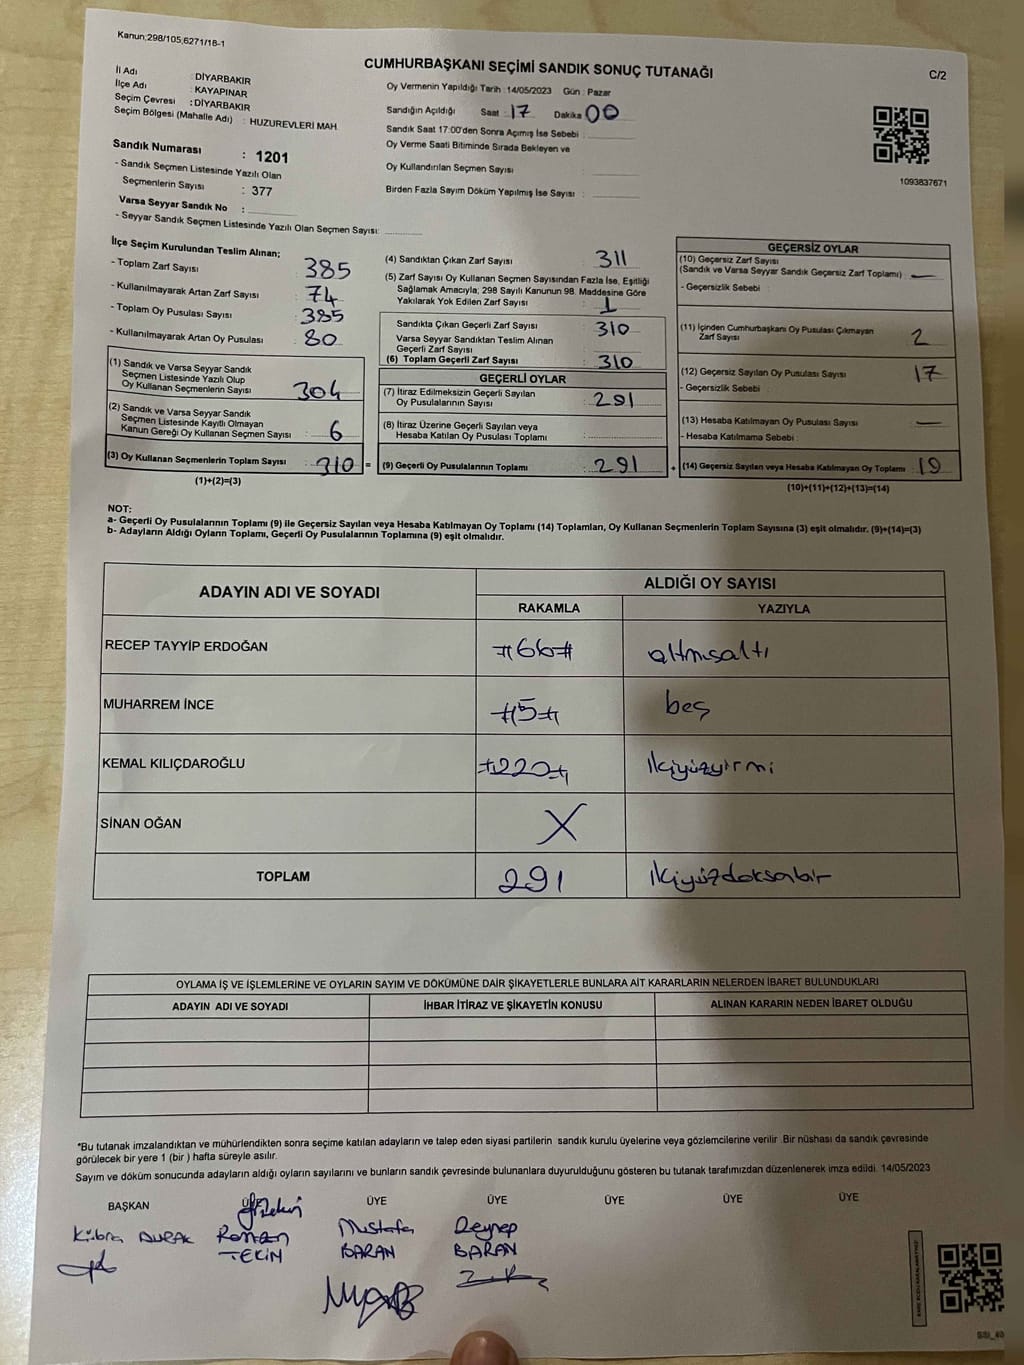 Kanun;298/105,6271/18-1
CUMHURBAŞKANI SEÇİMİ SANDIK SONUÇ TUTANAĞI
C/2
İl Adı : DİYARBAKIR
İlçe Adı : KAYAPINAR
Seçim Çevresi : DİYARBAKIR
Seçim Bölgesi (Mahalle Adı) : HUZUREVLERİ MAH.
Sandık Numarası : 1201
- Sandık Seçmen Listesinde Yazılı Olan
Seçmenlerin Sayısı : 377
Varsa Seyyar Sandık No :
- Seyyar Sandık Seçmen Listesinde Yazılı Olan Seçmen Sayısı:
Oy Vermenin Yapıldığı Tarih : 14/05/2023 Gün : Pazar
Sandığın Açıldığı Saat : 17 Dakika 00
Sandık Saat 17:00'den Sonra Açımış İse Sebebi :
Oy Verme Saati Bitiminde Sırada Bekleyen ve
Oy Kullandırılan Seçmen Sayısı :
Birden Fazla Sayım Döküm Yapılmış İse Sayısı :
1093837671
İlçe Seçim Kurulundan Teslim Alınan;
- Toplam Zarf Sayısı : 385
- Kullanılmayarak Artan Zarf Sayısı : 74
- Toplam Oy Pusulası Sayısı : 385
- Kullanılmayarak Artan Oy Pusulası : 80
(1) Sandık ve Varsa Seyyar Sandık
Seçmen Listesinde Yazılı Olup
Oy Kullanan Seçmenlerin Sayısı : 304
(2) Sandık ve Varsa Seyyar Sandık
Seçmen Listesinde Kayıtlı Olmayan
Kanun Gereği Oy Kullanan Seçmen Sayısı : 6
(3) Oy Kullanan Seçmenlerin Toplam Sayısı : 310 =
(1)+(2)=(3)
(4) Sandıktan Çıkan Zarf Sayısı : 311
(5) Zarf Sayısı Oy Kullanan Seçmen Sayısından Fazla İse, Eşitliği
Sağlamak Amacıyla; 298 Sayılı Kanunun 98. Maddesine Göre
Yakılarak Yok Edilen Zarf Sayısı : 1
Sandıkta Çıkan Geçerli Zarf Sayısı : 310
Varsa Seyyar Sandıktan Teslim Alınan
Geçerli Zarf Sayısı :
(6) Toplam Geçerli Zarf Sayısı : 310
GEÇERLİ OYLAR
(7) İtiraz Edilmeksizin Geçerli Sayılan
Oy Pusulalarının Sayısı : 291
(8) İtiraz Üzerine Geçerli Sayılan veya
Hesaba Katılan Oy Pusulası Toplamı :
(9) Geçerli Oy Pusulalarının Toplamı : 291 +
GEÇERSİZ OYLAR
(10) Geçersiz Zarf Sayısı
(Sandık ve Varsa Seyyar Sandık Geçersiz Zarf Toplamı) : —
- Geçersizlik Sebebi :
(11) İçinden Cumhurbaşkanı Oy Pusulası Çıkmayan
Zarf Sayısı : 2
(12) Geçersiz Sayılan Oy Pusulası Sayısı : 17
- Geçersizlik Sebebi :
(13) Hesaba Katılmayan Oy Pusulası Sayısı : —
- Hesaba Katılmama Sebebi :
(14) Geçersiz Sayılan veya Hesaba Katılmayan Oy Toplamı : 19
(10)+(11)+(12)+(13)=(14)
NOT:
a- Geçerli Oy Pusulalarının Toplamı (9) ile Geçersiz Sayılan veya Hesaba Katılmayan Oy Toplamı (14) Toplamları, Oy Kullanan Seçmenlerin Toplam Sayısına (3) eşit olmalıdır. (9)+(14)=(3)
b- Adayların Aldığı Oyların Toplamı, Geçerli Oy Pusulalarının Toplamına (9) eşit olmalıdır.
ADAYIN ADI VE SOYADI
ALDIĞI OY SAYISI
RAKAMLA YAZIYLA
RECEP TAYYİP ERDOĞAN #66# altmışaltı
MUHARREM İNCE #5# beş
KEMAL KILIÇDAROĞLU #220# ikiyüzyirmi
SİNAN OĞAN X
TOPLAM 291 ikiyüzdoksabir
OYLAMA İŞ VE İŞLEMLERİNE VE OYLARIN SAYIM VE DÖKÜMÜNE DAİR ŞİKAYETLERLE BUNLARA AİT KARARLARIN NELERDEN İBARET BULUNDUKLARI
ADAYIN ADI VE SOYADI İHBAR İTİRAZ VE ŞİKAYETİN KONUSU ALINAN KARARIN NEDEN İBARET OLDUĞU
*Bu tutanak imzalandıktan ve mühürlendikten sonra seçime katılan adayların ve talep eden siyasi partilerin sandık kurulu üyelerine veya gözlemcilerine verilir .Bir nüshası da sandık çevresinde
görülecek bir yere 1 (bir ) hafta süreyle asılır.
Sayım ve döküm sonucunda adayların aldığı oyların sayılarını ve bunların sandık çevresinde bulunanlara duyurulduğunu gösteren bu tutanak tarafımızdan düzenlenerek imza edildi. 14/05/2023
BAŞKAN ÜYE ÜYE ÜYE ÜYE ÜYE ÜYE
Kübra DURAK
Ramazan TEKİN
Mustafa BARAN
Zeynep BARAN